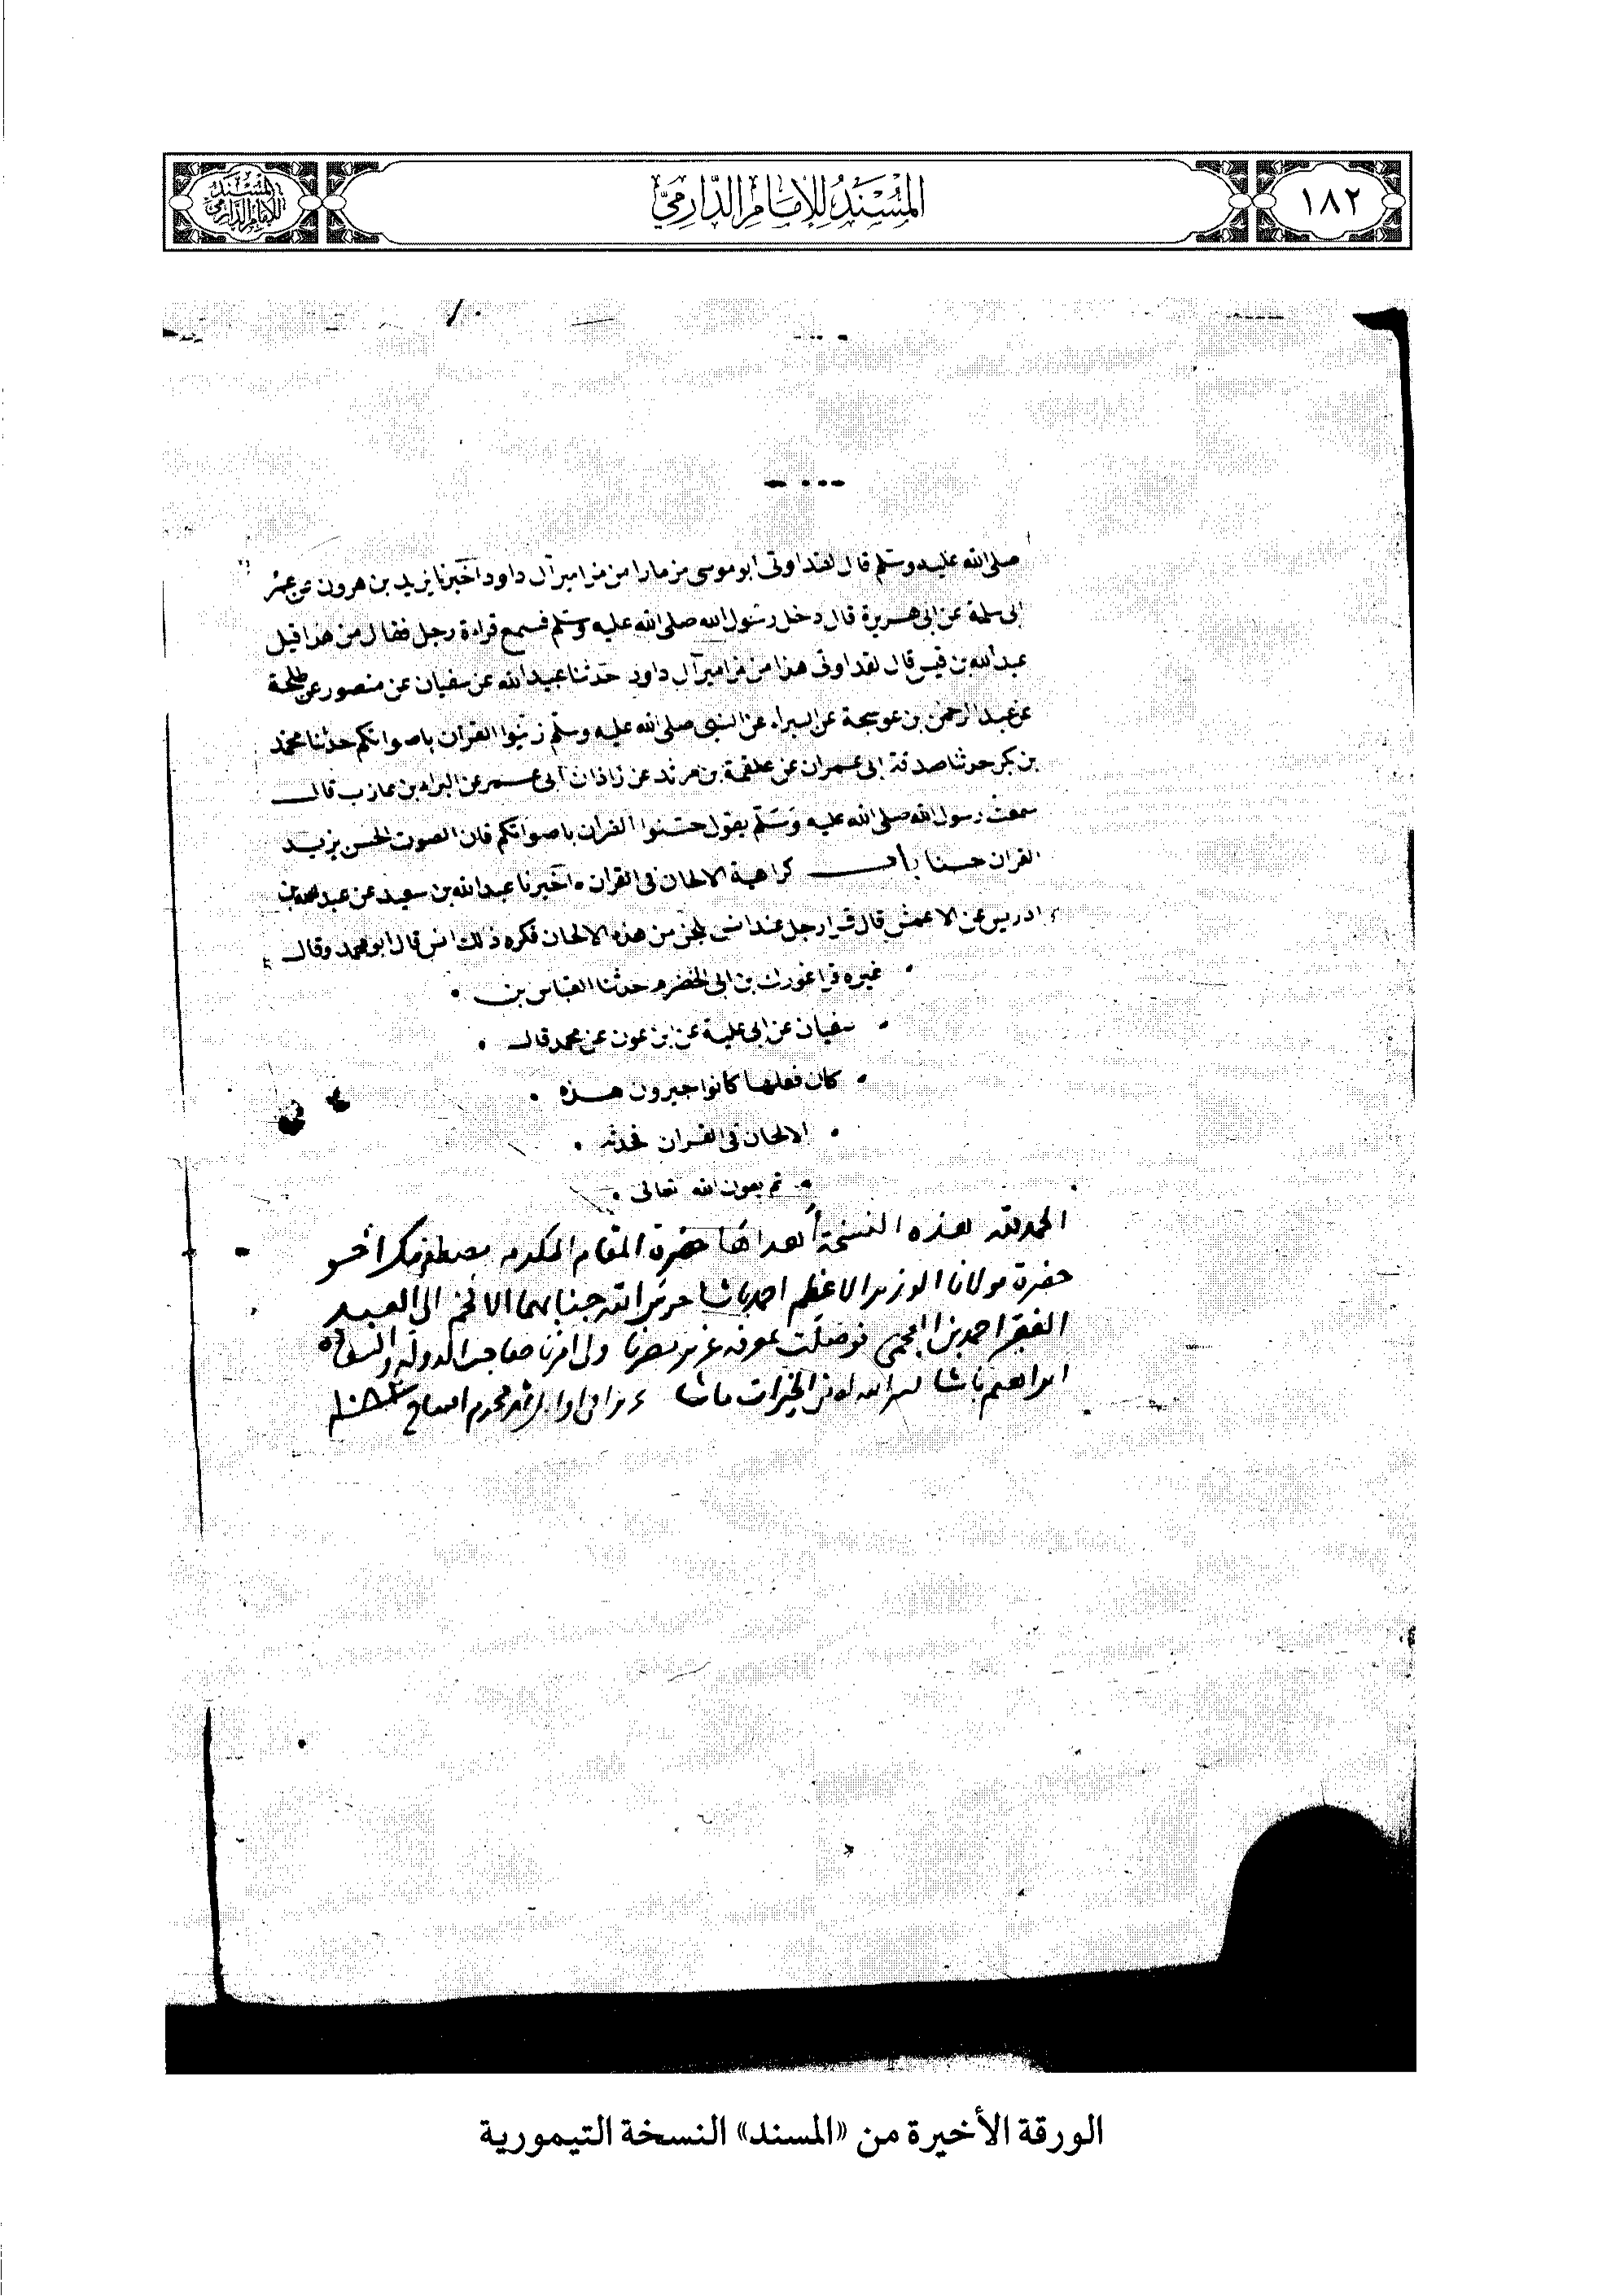 ١٨٢
المسند للإمام الدارمي
المسند للإمام الدارمي
صلى الله عليه وسلم قال لقد اوتى ابو موسى مزمارا من مزامير آل داود اخبرنا يزيد بن هرون عن محمد
ابى سلمة عن ابى هريرة قال دخل رسول الله صلى الله عليه وسلم فسمع قراءة رجل فقال من هذا قيل
عبد الله بن قيس قال لقد اوتى هذا من مزامير آل داود حدثنا عبيد الله عن سفيان عن منصور عن طلحة
عن عبد الرحمن بن عوسجة عن البراء عن النبى صلى الله عليه وسلم زينوا القران باصواتكم حدثنا محمد
بن بكر حدثنا صدقة ابى عمران عن علقمة بن مرثد عن زاذان ابى عمر عن البراء بن عازب قال
سمعت رسول الله صلى الله عليه وسلم يقول حسنوا القران باصواتكم فان الصوت الحسن يزيد
القران حسنا باب كراهية الالحان فى القران اخبرنا عبد الله بن سعيد عن عبد الله بن
ادريس عن الاعمش قال قرا رجل عند انس بلحن من هذه الالحان فكره ذلك انس قال ابو محمد وقال
غيره قرا غورك بن ابى الخضرم حدثنا العباس بن
سفيان عن ابى علية عن ابن عون عن محمد قال
كان فعلها كانوا يرون هذه
الالحان فى القران محدثة
تم بعون الله تعالى
الحمد لله هذه النسخة أهداها حضرة المقام المكرم مصطفى بك اخو
حضرة مولانا الوزير الاعظم احمد باشا حرس الله جنابهما الافخم الى العبد
الفقير احمد بن العجمي فوصلت بمعرفة عزيز مصرنا صاحب الدولة والسعادة
ابراهيم باشا يسر الله له من الخيرات ما شا محرم افتتاح
الورقة الأخيرة من «المسند» النسخة التيمورية